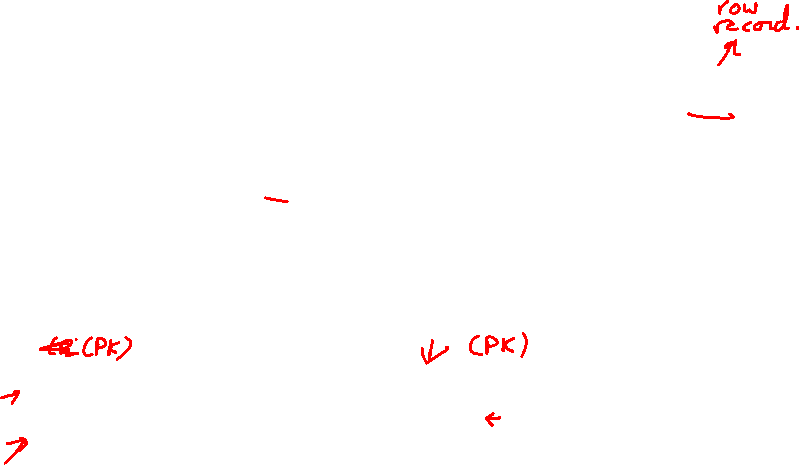 row
record.
(PK)
(PK)